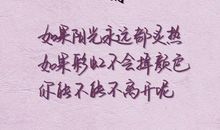 如果阳光永远都炙热
如果彩虹不会掉颜色
你能不能不离开呢